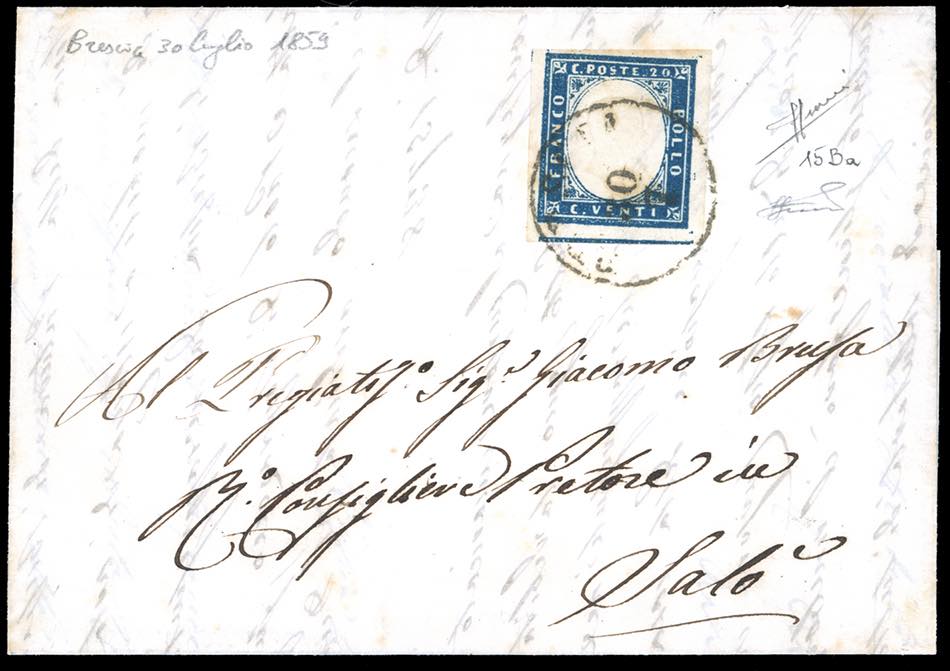 Brescia 30 luglio 1859
C. POSTE. 20
FRANCO
BOLLO
C. VENTI
15Ba
Al Pregiatis.º Sig.r Giacomo Brusa
R.º Consigliere Pretore in
Salò